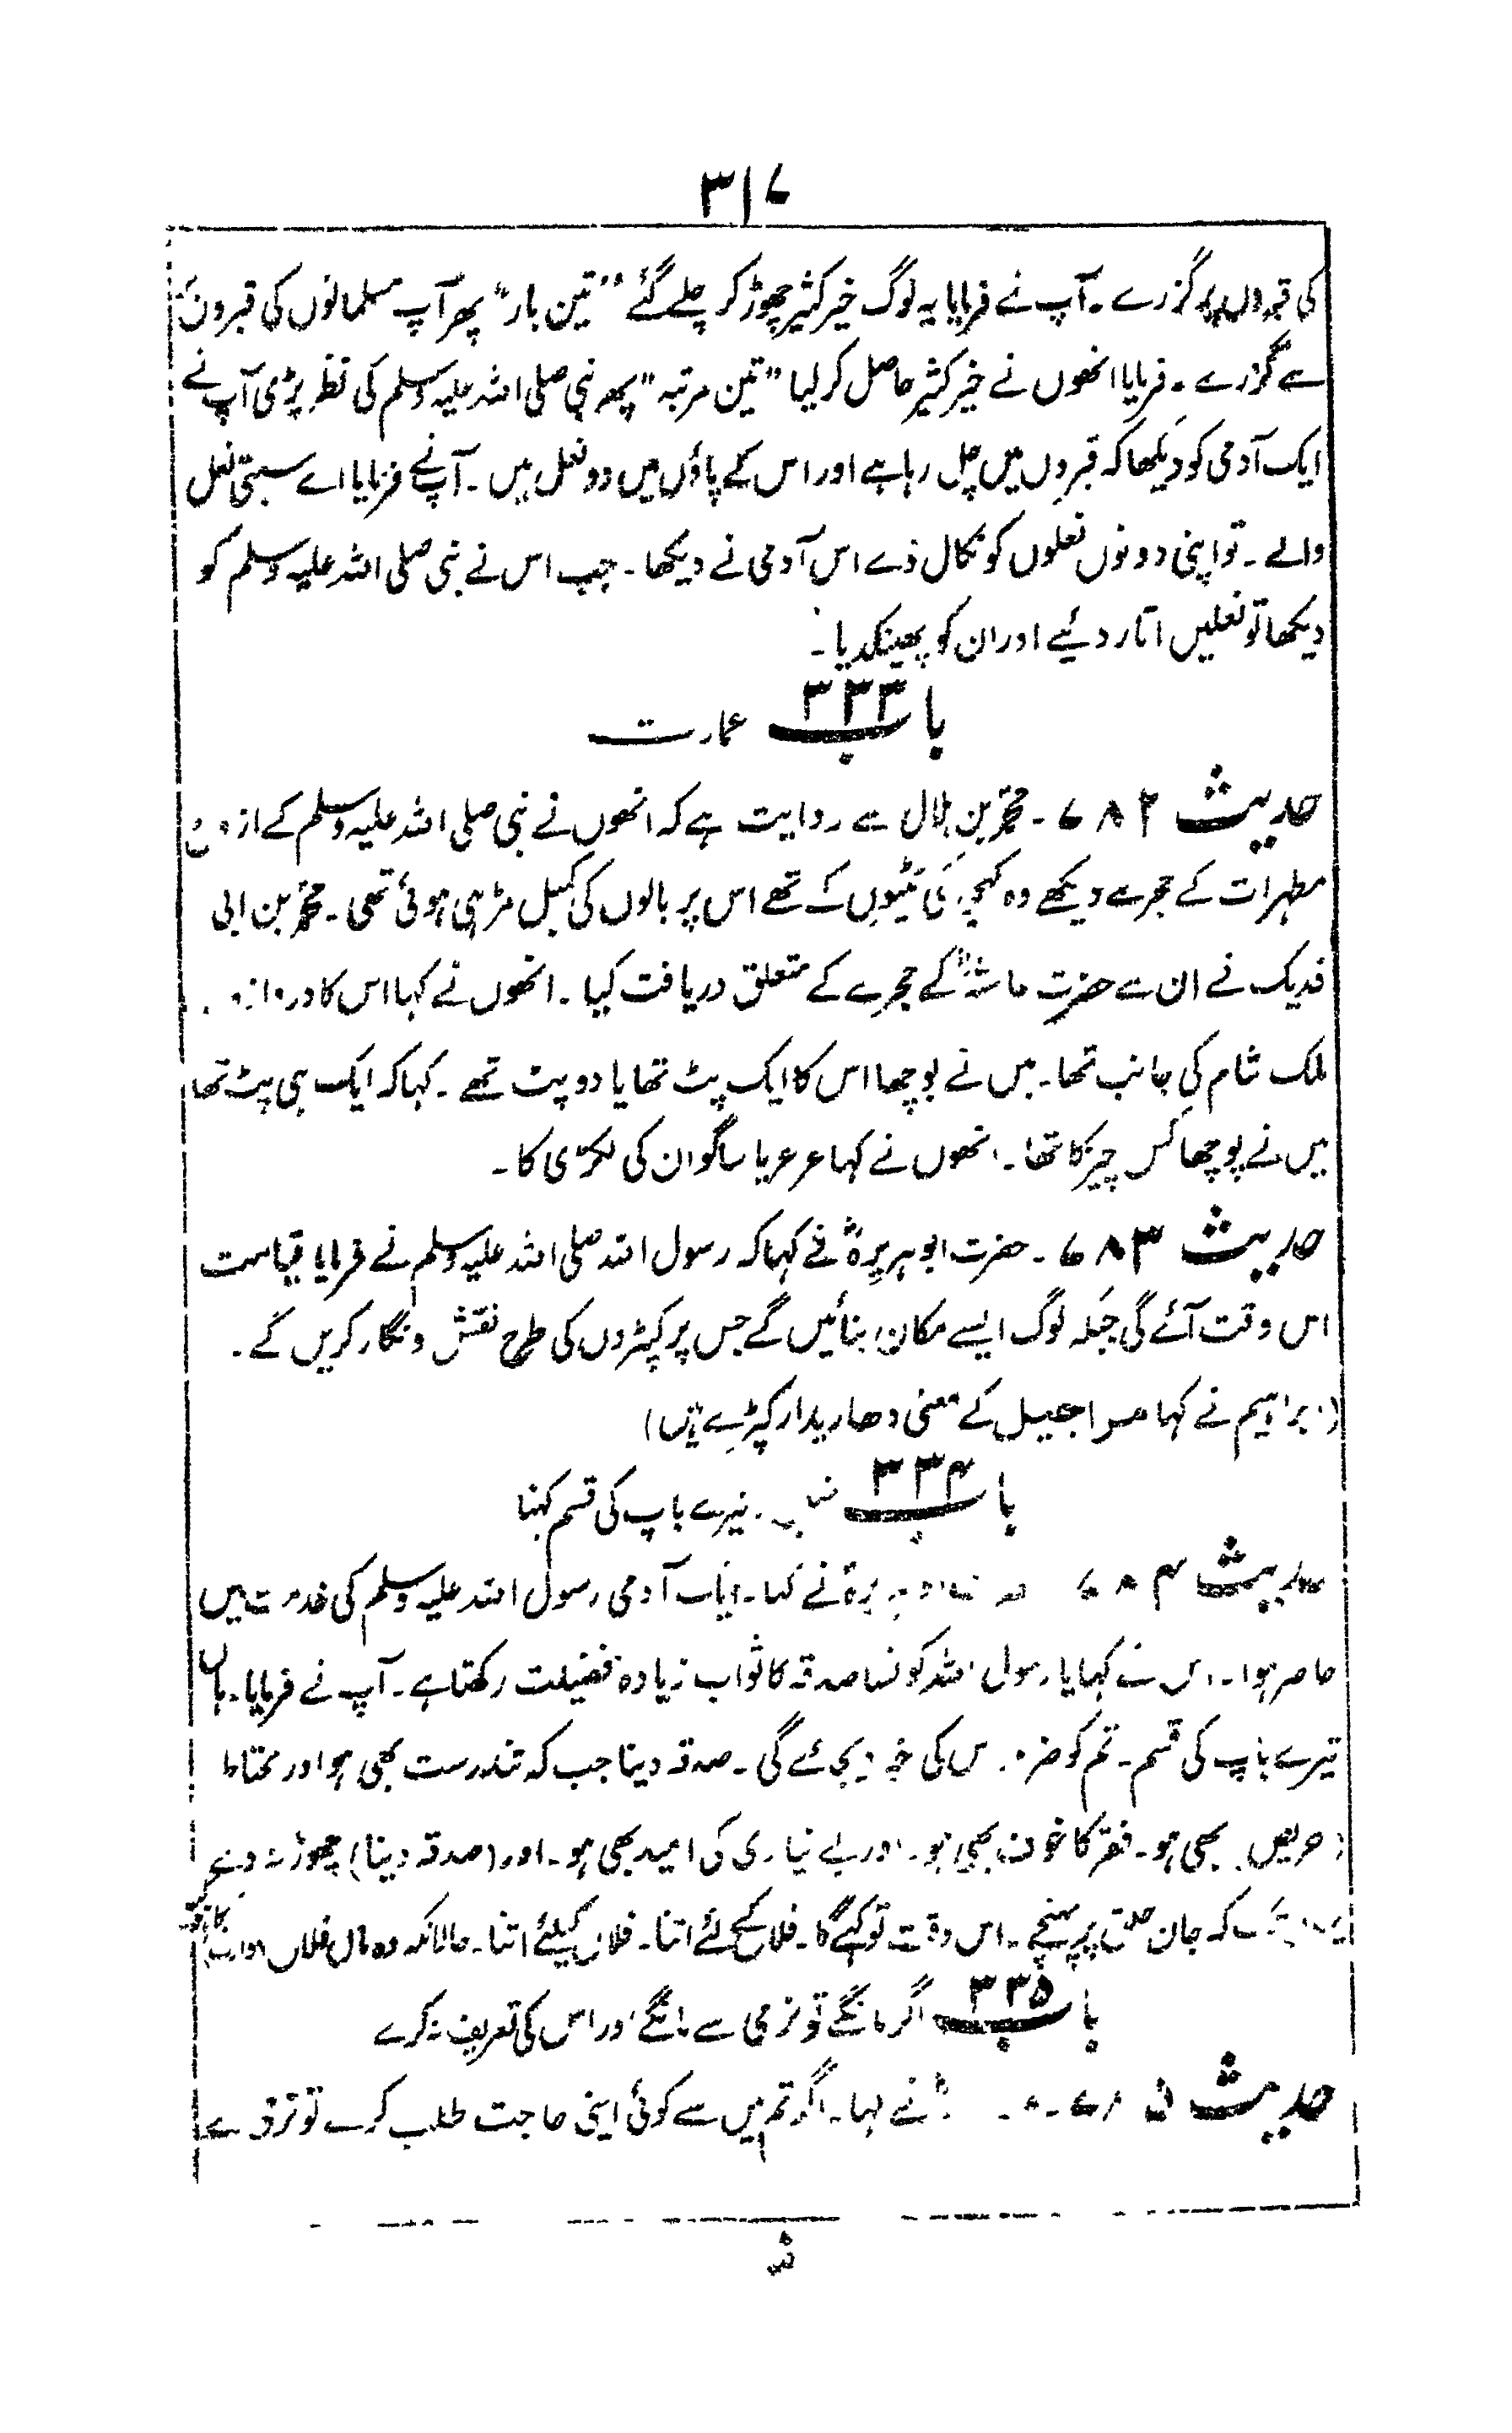 ۳۱۷
کی قبروں پر گزرے۔ آپ نے فرمایا یہ لوگ خیر کثیر چھوڑ کر چلے گئے "تین بار" پھر آپ مسلمانوں کی قبروں
سے گزرے۔ فرمایا انھوں نے خیر کثیر حاصل کر لیا "تین مرتبہ" پھر نبی صلی اللہ علیہ وسلم کی نظر پڑی آپ نے
ایک آدمی کو دیکھا کہ قبروں میں چل رہا ہے اور اس کے پاؤں میں دو نعل ہیں۔ آپ نے فرمایا اے سبتی نعل
والے۔ تو اپنی دونوں نعلوں کو نکال دے اس آدمی نے دیکھا۔ جب اس نے نبی صلی اللہ علیہ وسلم کو
دیکھا تو نعلیں اتار دئیے اور ان کو پھینکدیا۔
باب ۳۳۳ عمارت
حدیث ۷۸۲۔ محمد بن ہلال سے روایت ہے کہ انھوں نے نبی صلی اللہ علیہ وسلم کے ازواج
مطہرات کے حجرے دیکھے وہ کھجور کی ٹٹیوں کے تھے اس پر بالوں کی کمبل مڑھی ہوئی تھی۔ محمد بن ابی
فدیک نے ان سے حضرت عائشہؓ کے حجرے کے متعلق دریافت کیا۔ انھوں نے کہا اس کا دروازہ
ملک شام کی جانب تھا۔ میں نے پوچھا اس کا ایک پٹ تھا یا دو پٹ تھے۔ کہا کہ ایک ہی پٹ تھا
میں نے پوچھا کس چیز کا تھا۔ انھوں نے کہا عرعر یا ساگوان کی لکڑی کا۔
حدیث ۷۸۳۔ حضرت ابو ہریرہؓ نے کہا کہ رسول اللہ صلی اللہ علیہ وسلم نے فرمایا قیامت
اس وقت آئے گی جبکہ لوگ ایسے مکان بنائیں گے جس پر کپڑوں کی طرح نقش و نگار کریں گے۔
(ابراہیم نے کہا مراجیل کے معنی دھاریدار کپڑے ہیں)
باب ۳۳۴ تیرے باپ کی قسم کہنا
حدیث ۷۸۴ ہریرہؓ نے کہا۔ ایک آدمی رسول اللہ علیہ وسلم کی خدمت میں
حاضر ہوا۔ اس نے کہا یا رسول اللہ کونسا صدقہ کا ثواب زیادہ فضیلت رکھتا ہے۔ آپ نے فرمایا۔ ہاں
تیرے باپ کی قسم۔ تم کو ضرور اس کی خبر دیجئے گی۔ صدقہ دینا جب کہ تندرست بھی ہو اور محتاط
حریص بھی ہو۔ فقر کا خوف بھی ہو۔ اور بے نیازی کی امید بھی ہو۔ اور (صدقہ دینا) چھوڑ نہ دے
کہ جان حلق پر پہنچے۔ اس وقت تو کہے گا۔ فلاں کے لئے اتنا۔ فلاں کیلئے اتنا۔ حالانکہ وہ مال فلاں
باب ۳۳۵ اگر مانگے تو نرمی سے مانگے اور اس کی تعریف نہ کرے
حدیث نے کہا۔ اگر تم میں سے کوئی اپنی حاجت طلب کرے تو نرمی سے